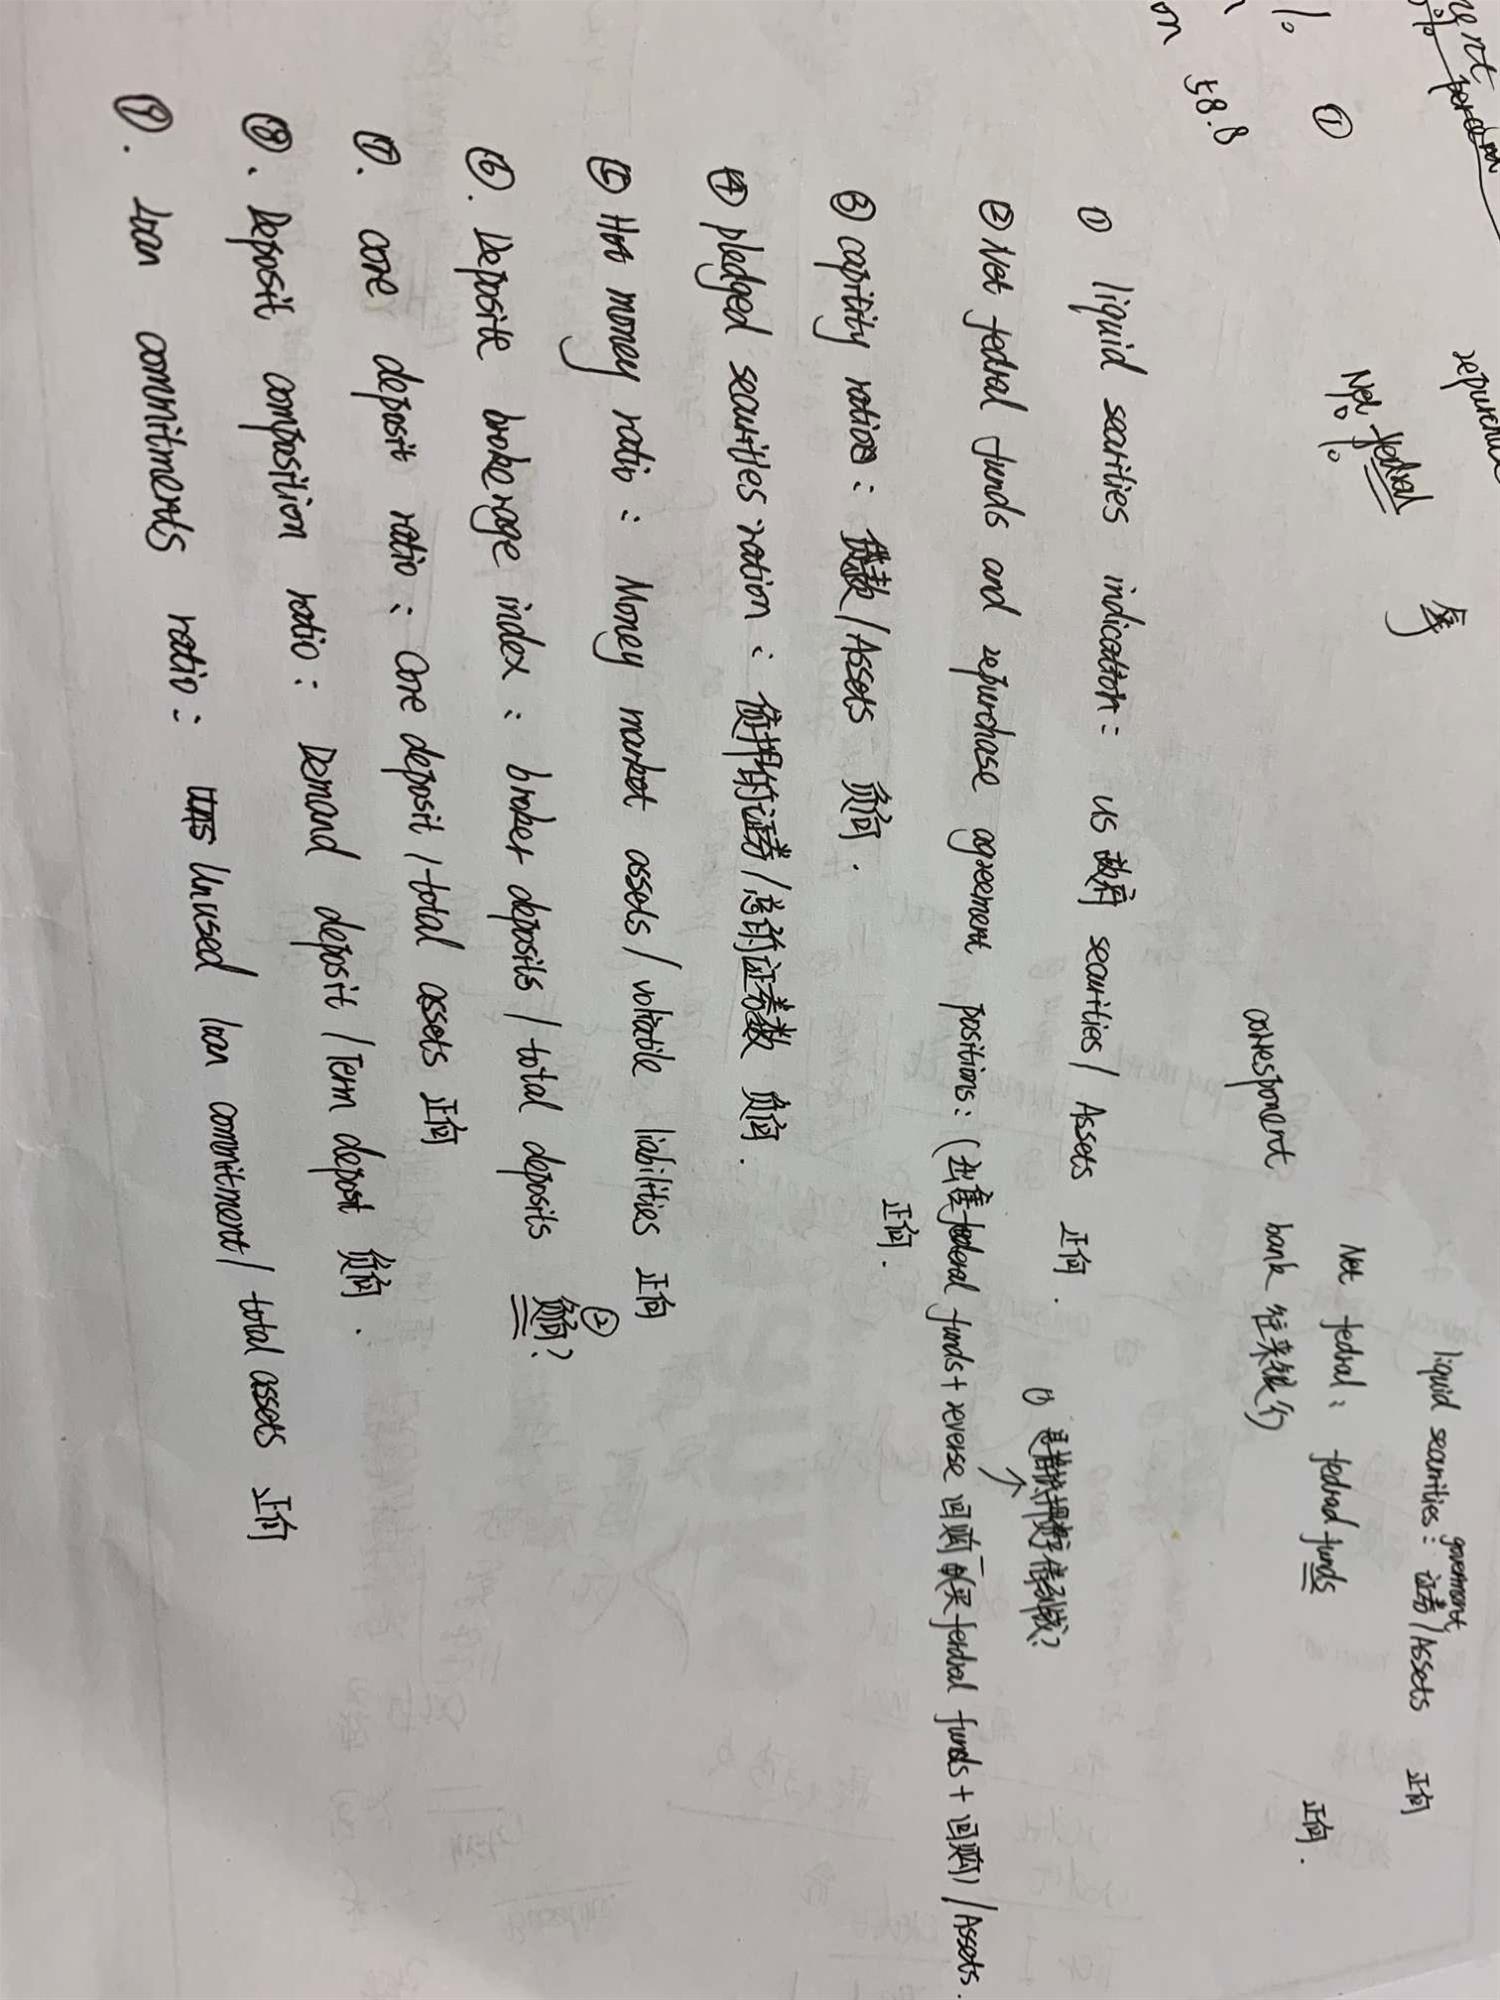 repurchase
① Net fedral 每
58.8
liquid securities: government 证券/Assets 正向
Net fedral: fedral funds 正向.
corresponent bank 往来银行
① liquid securities indicator: US 政府 securities / Assets 正向.
② Net fedral funds and repurchase agreement positions: (出售 federal funds + reverse 回购 - 买 fendral funds + 回购) / Assets.
正向.
③ capitity ratio: 贷款/Assets 负向.
④ pledged securities ration: 质押的证券/总的证券数 负向.
⑤ Hot money ratio: Money market assets / volratile liabilities 正向
⑥. Deposite brokerage index: broker deposits / total deposits 负向? ②
⑦. core deposit ratio: Core deposit / total assets 正向
⑧. Deposit composition ratio: Demand deposit / Term depost 负向.
⑨. Loan commitments ratio: Unused loan commitment / total assets 正向